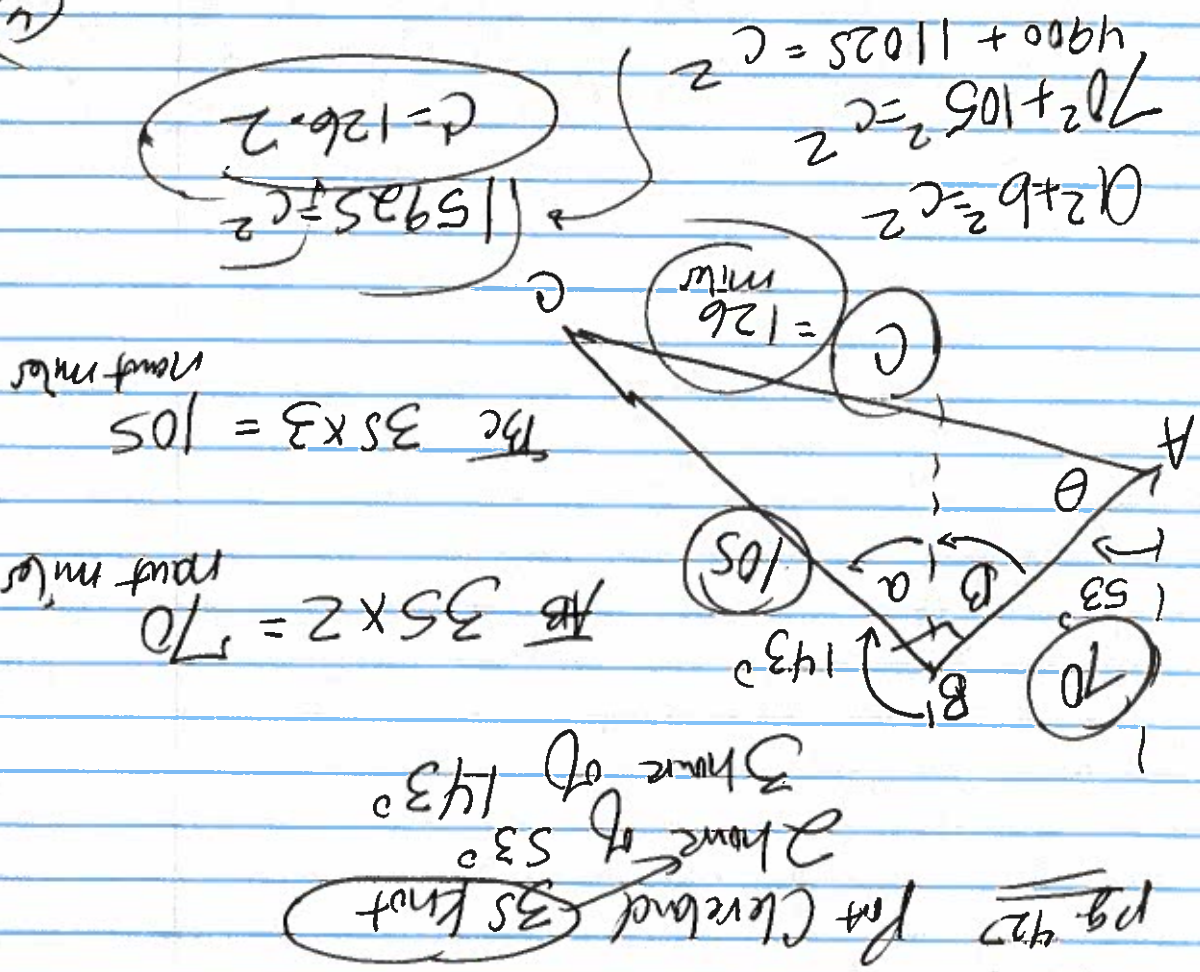 pg 42 Pat Cleveland 35 knot
2 hour of 53°
3 hour of 143°
B
143°
70
53°
B
a
AB 35 x 2 = 70
naut miles
105
θ
A
BC 35 x 3 = 105
naut miles
C = 126
miles
C
a²+b²=c²
70²+105²=c²
4900 + 11025 = c²
15925=c²
c=126.2